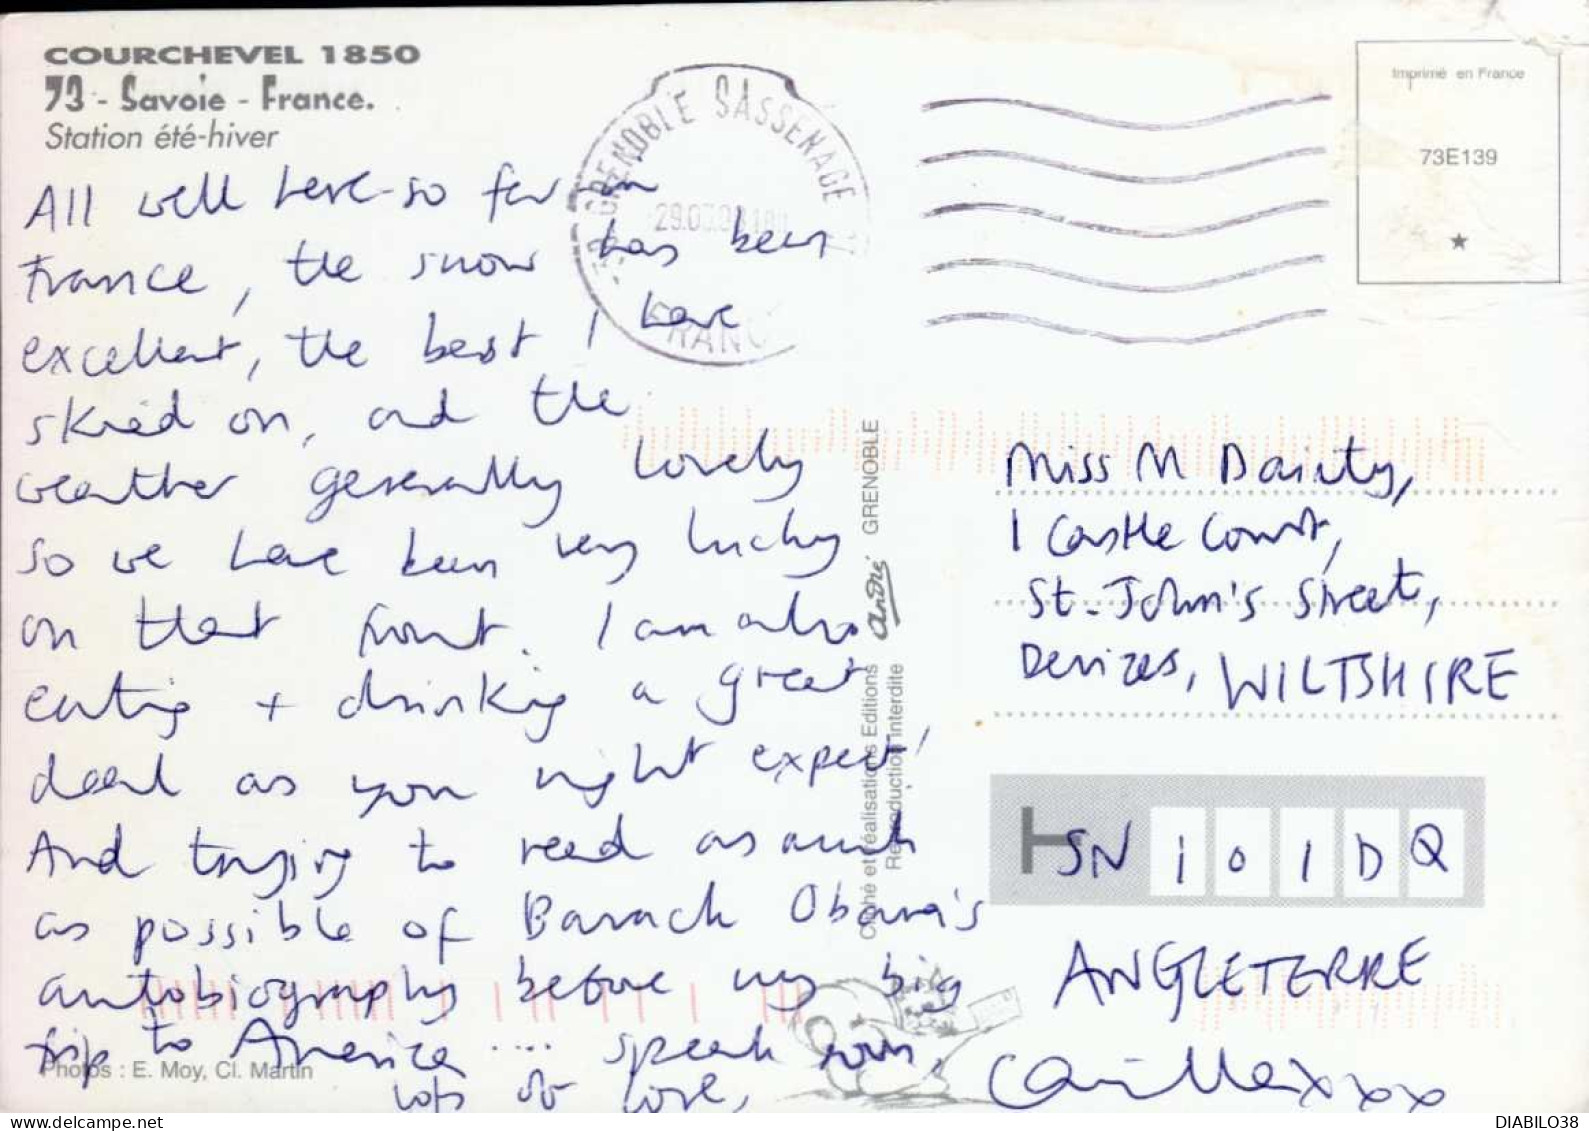 COURCHEVEL 1850
73 - Savoie - France.
Station été-hiver
All well here - so far in
France, the snow has been
excellent, the best I have
skiied on, and the
weather generally lovely
so we have been very lucky
on that front. I am also
eating + drinking a great
deal as you might expect!
And trying to read as much
as possible of Barack Obama's
autobiography before my big
trip to America .... speak soon,
lots of love,
Camilla xxxx
Photos : E. Moy, Cl. Martin
GRENOBLE SASSENAGE
FRANC
Cliché et réalisations Editions
Reproduction interdite
André GRENOBLE
Imprimé en France
73E139
Miss M Dainty,
1 Castle Court,
St. John's Street,
Devizes, WILTSHIRE
SN101DQ
ANGLETERRE
DIABILO38